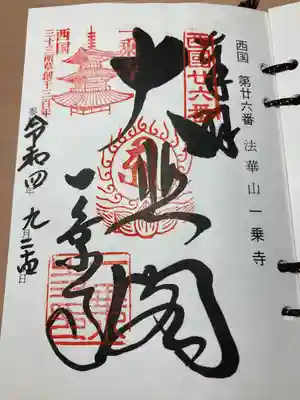 西国 第廿六番 法華山 一乗寺
奉拝
西國廿六番
大悲閣
一乗寺
一乗寺
西国
三十三所草創千三百年
令和四年九月二十四日